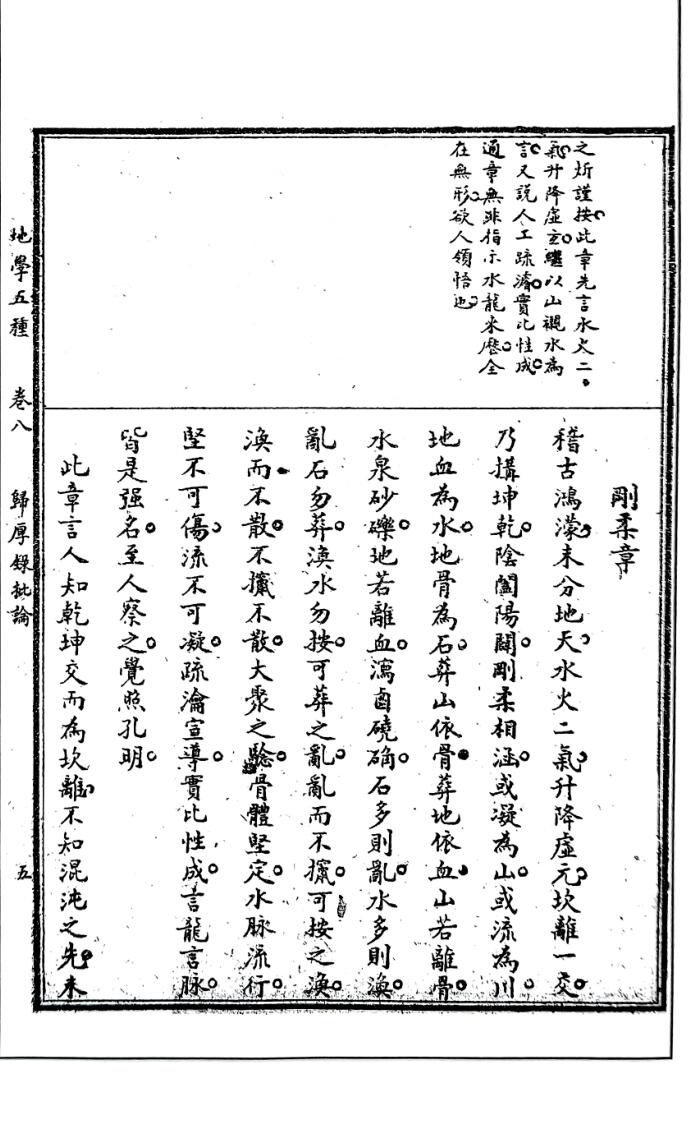 之斨謹按此章先言水火二
氣升降虛玄繼以山襯水為
言又說人工疏濬實比性成
通章無非指示水龍來歷全
在無形欲人領悟也
剛柔章
稽古鴻濛未分地天水火二氣升降虛元坎離一交
乃搆坤乾陰闔陽闢剛柔相涵或凝為山或流為川
地血為水地骨為石葬山依骨葬地依血山若離骨
水泉砂礫地若離血瀉鹵磽确石多則亂水多則渙
亂石勿葬渙水勿按可葬之亂亂而不攛可按之渙
渙而不散不攛不散大聚之騐骨體堅定水脉流行
堅不可傷流不可凝疏瀹宣導實比性成言龍言脉
皆是强名至人察之覺照孔明
此章言人知乾坤交而為坎離不知混沌之先未
地學五種 卷八 歸厚錄批論 五